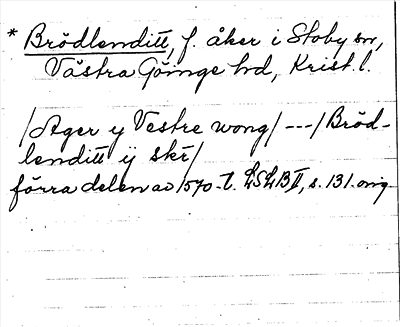 * Brödlenditt, f. åker i Stoby sn,
Västra Göinge hd, Krist. l.
/Ager y Vestre wong/ ---/Bröd-
lenditt ij skr/
förra delen av 1570-t. LSLB II, s. 131. orig.